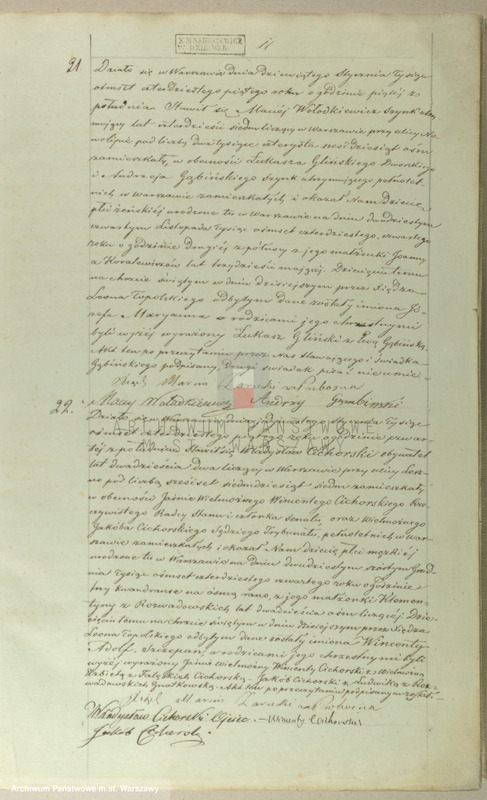 11
21 Działo się w Warszawie dnia dziewiątego Stycznia tysiąc
ośmset czterdziestego piątego roku o godzinie piątej z
południa. Stawił się Maciej Wołodkiewicz Szynk utrzy
mujący lat czterdzieści siedm liczący w Warszawie przy ulicy No
wolipie pod liczbą dwa tysiące czterysta sześćdziesiąt ośm
zamieszkały, w obecności Łukasza Glińskiego Dworskiego
i Andrzeja Gąbińskiego Szynk utrzymującego pełnolet
nich w Warszawie zamieszkałych i okazał Nam dziecię
płci żeńskiej urodzone tu w Warszawie na dniu dwudziestym
czwartym Listopada tysiąc ośmset czterdziestego czwartego
roku o godzinie drugiej z północy z jego małżonki Joanny
z lat trzydzieści mającej. Dziecięciu temu
na chrzcie świętym w dniu dzisiejszym przez Xiędza
Leona Topolskiego odbytym dane zostały imiona Jó-
zefa Maryanna a rodzicami jego chrzestnymi
byli wyżej wyrażony Łukasz Gliński z Ewą Gąbińską.
Akt ten po przeczytaniu przez Nas stawającego i świadka
Gąbińskiego podpisany, drugi świadek pisać nieumie
Maciej Wołodkiewicz Andrzy Gombinski
22. Działo się w Warszawie dnia Stycznia tysiąc
ośmset czterdziestego piątego roku o godzinie czwar
tej z południa Stawił się Władysław Cichorski obywatel
lat dwadzieścia dwa liczący w Warszawie przy ulicy Lesz
no pod liczbą sześćset siedmdziesiąt siedm zamieszkały
w obecności Jaśnie Wielmożnego Wincentego Cichorskiego Rze
czywistego Radcy Stanu i członka Senatu, oraz Wielmożnego
Jakóba Cichorskiego Sędziego Trybunału, pełnoletnich w War
szawie zamieszkałych i okazał Nam dziecię płci męzkiej
urodzone tu w Warszawie na dniu dwudziestym szóstym Grud
nia tysiąc ośmset czterdziestego czwartego roku o godzinie
trzy kwandranse na ósmą rano, z jego małżonki Klemen
tyny z Rozwadowskich lat dwadzieścia ośm liczącej. Dzie
cięciu temu na chrzcie świętym w dniu dzisiejszym przez Xiędza
Leona Topolskiego odbytym dane zostały imiona Wincenty
Adolf Szczepan, a rodzicami jego chrzestnymi byli
wyżej wyrażony Jaśnie wielmożny Wincenty Cichorski z Wielmożną
Elżbietą z Cichorską - Jakób Cichorski z Ludwiką z Roz
wadowskich Gnatkowską. Akt ten po przeczytaniu podpisany
Władysław Cichorski Ojciec - Wincenty Cichorski
Jakób Cichorski
ARCHIWUM PAŃSTWOWE
W WARSZAWIE
Archiwum Państwowe m.st. Warszawy